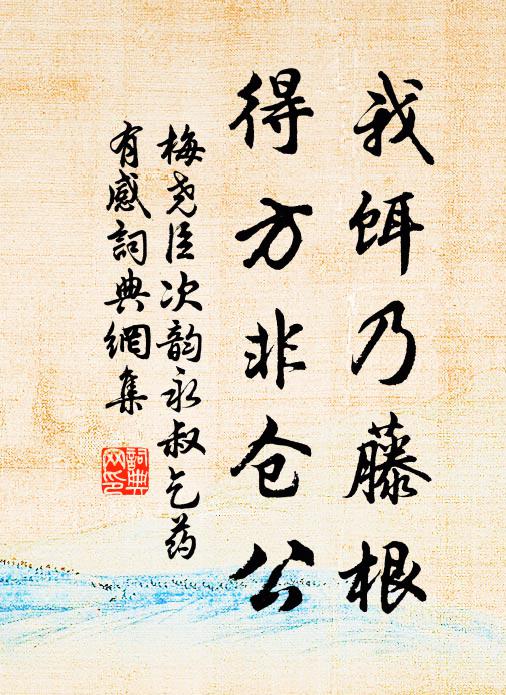 我饵乃藤根
得方非仓公
梅尧臣次韵永叔乞药
有感詞典網集
詞典
网印